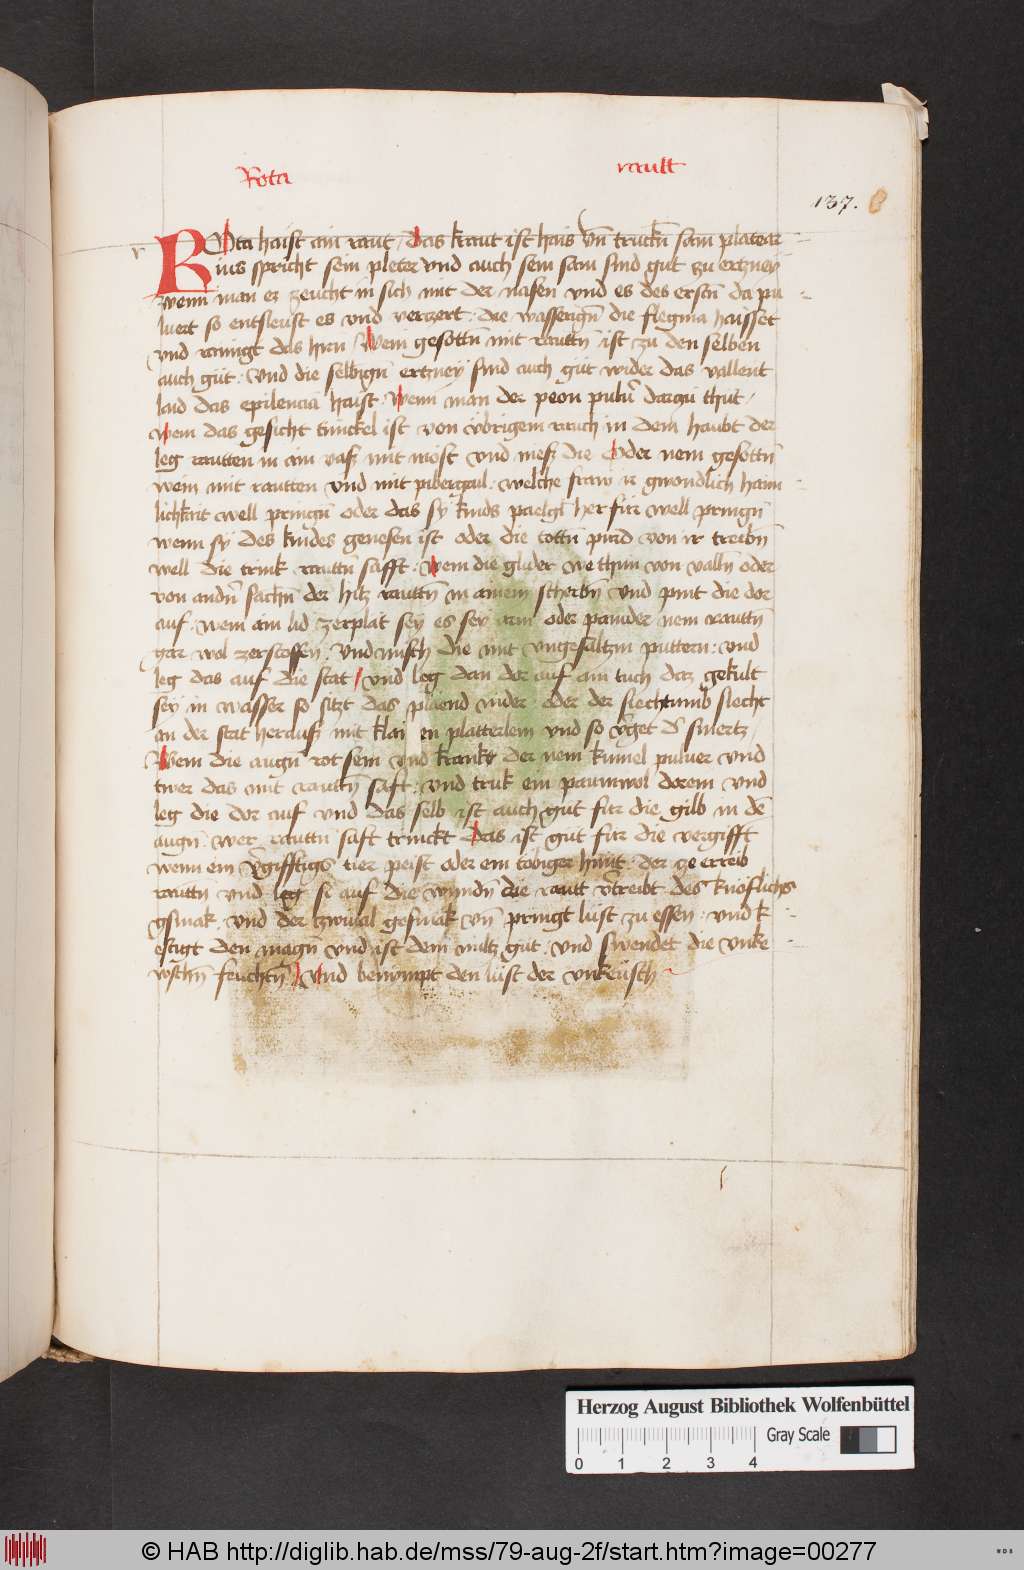 Rota rautt
137.
r
ROta haist ain raut / Das kraut ist hais vn̄ truckn̄ sam platear
ius spricht sein pleter vnd auch sein sam sind gut zu ertzney
wenn man ez zeucht in sich mit der nasen vnd es des ersten da pu
luert so entsleust es vnd verzert die wasserign̄ die flegma haisset
vnd rainigt das hirn / Wein gesottn̄ mit rauttn̄ ist zu den selben
auch gut : vnd die selbign̄ ertzney sind auch gut wider das vallent
laid das epilencia haist : Wenn man der peon pulu̾ dartzu thut /
Wem das gesicht tunckel ist von vbrigem rauch in dem haubt der
leg rautten in ain vasz mit most vnd niesz die Oder nem gesottn̄
wein mit rautten vnd mit pibergail : welche fraw ir gwondlich haim
lichkait well pringn̄ oder das sy kinds paelgl herfür well pringn̄
wenn sy des kindes genesen ist oder die tottn̄ purd von ir treibn̄
well die trink rauttn̄ safft : Wem die glider we thun von valln̄ oder
von andn̄ sachn̄ der hitz rauttn̄ in ainem scherbn̄ vnd pint die dor
auf . wem ain lid zerplat sey es sey arm oder painder nem rauttn̄
gar wol zerstossen vnd misch die mit vngesaltzm puttern : vnd
leg das auf die stat / vnd leg dan dor auf ain tuch daz gekult
sey in wasser so sitzt das plaend nider oder der siechtumb slecht
an der stat herausz mit klainen platterlein vnd so v̾get d̾ smertz /
Wem die augn̄ rot sein vnd krankt der nem kumel puluer vnd
twer das mit rauttn̄ saft : vnd truk ein paumwol dorein vnd
leg die dor auf vnd das selb ist auch gut für die gilb in dē
augn̄ . wer rauttn̄ saft trinckt Das ist gut für die vergifft
wenn ein v̾gifftigs tier peist oder ein tobiger hunt : der ze erreib
rauttn̄ vnd leg si auf die wundn̄ die rautt v̾treibt des knoflichs
gsmak . vnd der zwiual gesmak vn̄ pringt lust zu essen : vnd k
estigt den magn̄ vnd ist dem miltz gut . vnd swendet die vnke
wschn̄ feuchtn̄ / Vnd benympt den lust der vnkeusch
Herzog August Bibliothek Wolfenbüttel
Gray Scale
0 1 2 3 4
© HAB http://diglib.hab.de/mss/79-aug-2f/start.htm?image=00277
WDB